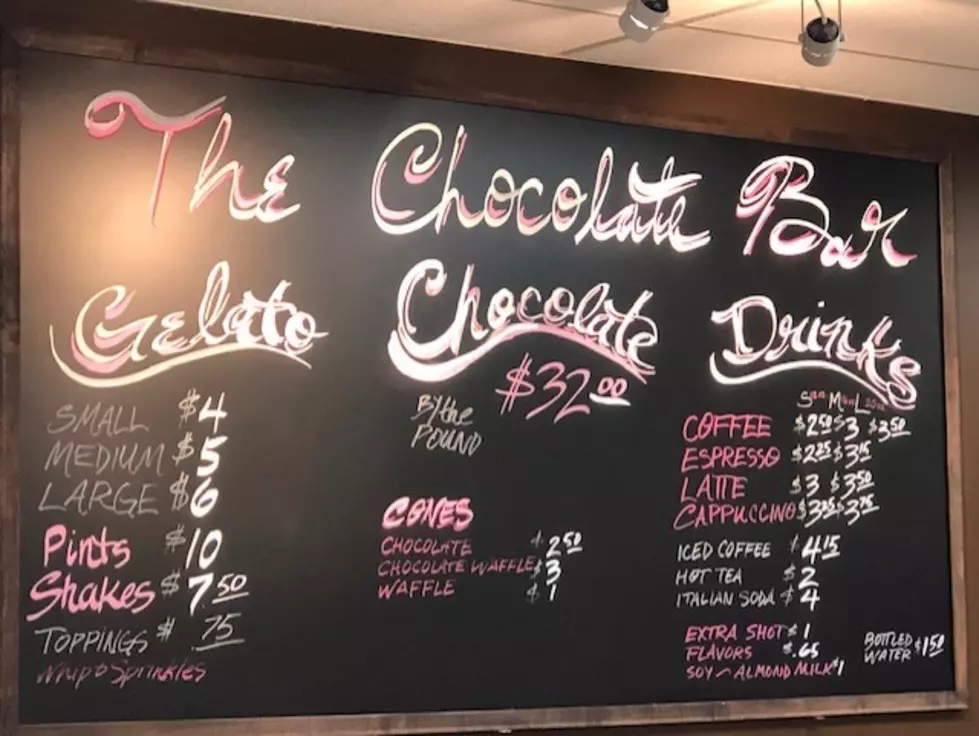 The Chocolate Bar
Gelato
SMALL $4
MEDIUM $5
LARGE $6
Pints $10
Shakes $7.50
TOPPINGS $.75
Whip & Sprinkles
Chocolate
$32.00
BY the
POUND
CONES
CHOCOLATE $2.50
CHOCOLATE WAFFLE $3
WAFFLE $1
Drinks
S M L
COFFEE $2.50 $3 $3.50
ESPRESSO
LATTE $3 $3.50
CAPPUCCINO
ICED COFFEE
HOT TEA $2
ITALIAN SODA $4
EXTRA SHOT $1
FLAVORS $.65
SOY ~ ALMOND MILK $1
BOTTLED
WATER $1.50